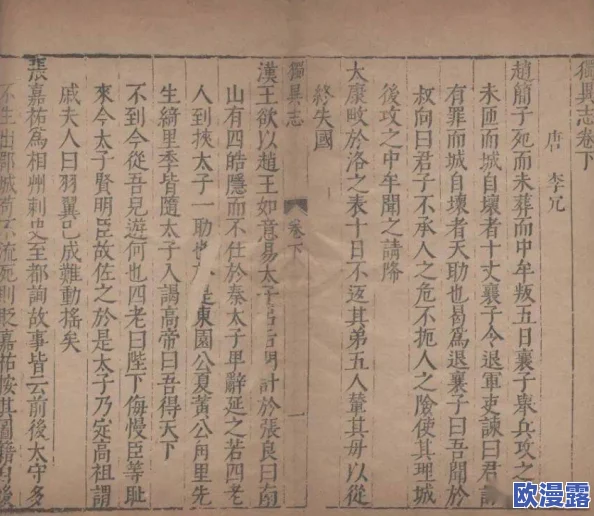 獨異志卷下
唐 李冗
趙簡子死而未葬而中牟叛五日襄子舉兵攻之
未匝而城自壞者十丈襄子令退軍吏諫曰君誅
有罪而城自壞者天助也曷為退襄子曰吾聞於
叔向曰君子不承人之危不扼人之險使其理城
後攻之中牟聞之請降
太康畋於洛之表十日不返其弟五人輦其母以從
終失國
獨異志
卷下
一
漢王欲以趙王如意易太子 計於張良曰南
山有四皓隱而不仕於秦太子卑辭延之若四老
人到挾太子一助也 是東園公夏黃公角里先
生綺里季皆隨太子入謁高帝曰吾得天下
不到今從吾兒遊何也四老曰陛下侮慢臣等恥
來今太子賢明臣故佐之於是太子乃定高祖謂
戚夫人曰羽翼已成難動搖矣
張嘉祐為相州刺史至都詢故事皆云前後太守多
不生出郡城 不流死則貶嘉祐按其圖籍
欧漫露